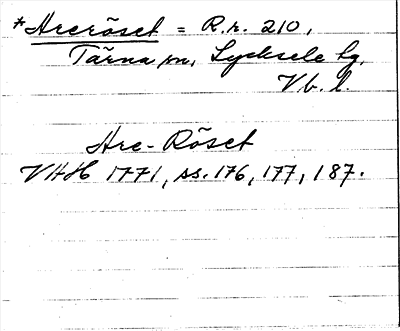 *Areröset = R.r. 210,
Tärna sn, Lycksele lg,
Vb. l.
Are-Röset
VHH 1771, ss. 176, 177, 187.